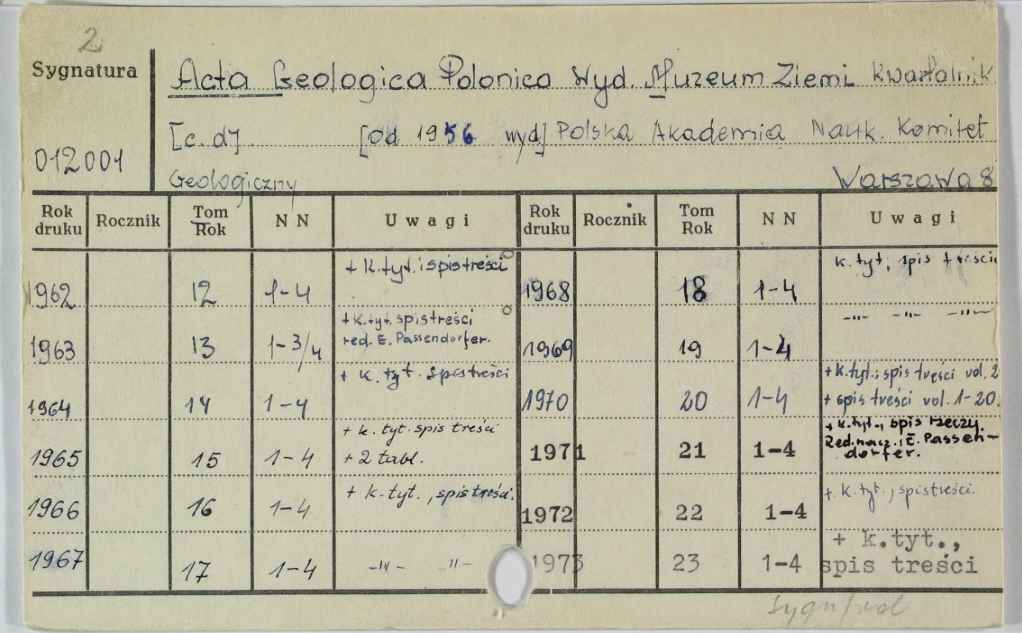 2
Sygnatura
Acta Geologica Polonica Wyd. Muzeum Ziemi Kwartalnik
[c.d]. [od 1956 wyd] Polska Akademia Nauk. Komitet
012001
Geologiczny Warszawa 8
Rok druku Rocznik Tom Rok NN Uwagi Rok druku Rocznik Tom Rok NN Uwagi
1962 12 1-4 + k.tyt. i spis treści 1968 18 1-4 k. tyt, spis treści
1963 13 1-3/4 + k.tyt. spis treści red. E. Passendorfer. 1969 19 1-4 -"- -"- -"-
1964 14 1-4 + k. tyt. spis treści 1970 20 1-4 + k.tyt.; spis treści vol. 2 + spis treści vol. 1-20.
1965 15 1-4 + k. tyt. spis treści + 2 tabl. 1971 21 1-4 + k.tyt., spis rzeczy. Red.nacz.: E. Passendorfer.
1966 16 1-4 + k-tyt., spis treści. 1972 22 1-4 + k. tyt., spis treści.
1967 17 1-4 -"- "- 1973 23 1-4 + k.tyt., spis treści